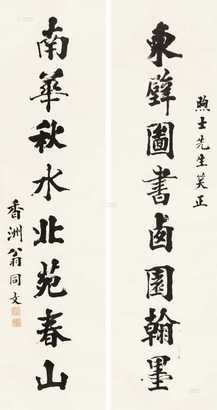 煦士先生笑正
東壁圖書西園翰墨
南華秋水北苑春山
香洲翁同文